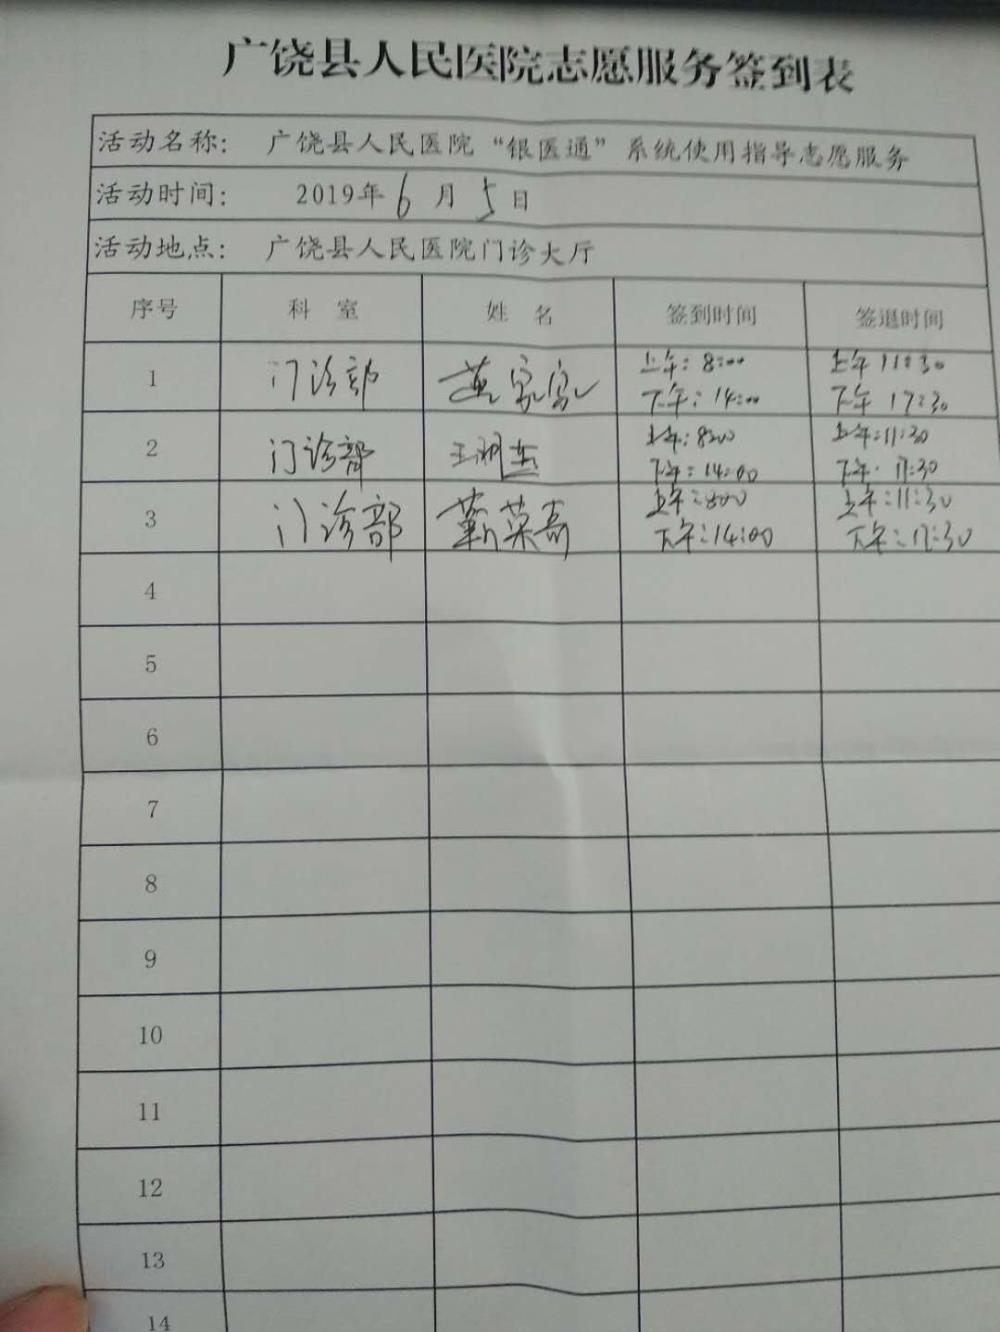 广饶县人民医院志愿服务签到表
活动名称： 广饶县人民医院“银医通”系统使用指导志愿服务
活动时间： 2019年6月5日
活动地点： 广饶县人民医院门诊大厅
序号 科 室 姓 名 签到时间 签退时间
1 门诊部 上午：8:00 上午 11:30
下午：14:00 下午 17:30
2 门诊部 上午：8:00 上午：11:30
下午：14:00 下午：17:30
3 门诊部 上午：8:00 上午：11:30
下午：14:00 下午：17:30
4
5
6
7
8
9
10
11
12
13
14